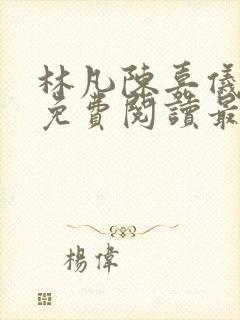 林凡陳嘉儀
免費閱讀最
楊偉